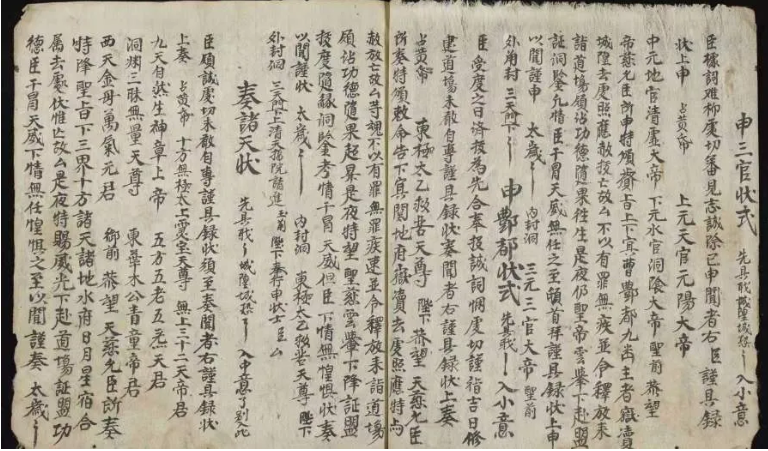 申三官狀式 先具我城隍城移 入小意
臣據詞难抑處切審見志誠除已申聞者右臣謹具録
狀上申 占黄帝 上元天官元陽大帝
中元地官清虚大帝 下元水官洞陰大帝 聖前 恭望
帝慈允臣所申特頒勑旨上下宜曹酆都九幽主者嶽瀆
城隍去處照應救拔亡故厶不以有罪無疾並令釋放来
詣道塲領沾功德隨果往生是夜仍聖帝雲輦下赴盟
証洞陰允情臣干冒天威無任之至頓首拜謹具録狀上申
以聞謹申 太歲 内封洞 三元三官大帝 聖前
外角封 三天門下 申酆都狀式 先具我 入小意
臣受度之日済拔為先合奉投誠詞悃處切謹指吉日修
建道塲未敢自專謹具録狀奏聞者右謹具録狀上奏
占黄帝 東極太乙救苦天尊 陛下 恭望 天慈允臣
所奏特頒敕命告下冥関地府嶽瀆去處照應特与
赦放亡故厶等魂不以有罪無罪疾速並令釋放来詣道塲
領沾功德隨果起昇是夜特望 聖慈雲輦下降証盟
投度隨緣洞陰奎考情干冒天威但臣下情無惶惧狀奏
以聞謹狀 太歲 内封洞 東極太乙救苦天尊 陛下
外封洞 三天門下上清天樞院請進 玉前 陛下奏行申狀士臣厶
奏諸天狀 先具我 城隍城移 入中意了到此
臣領誠處切未敢自專謹具録狀須至奏聞者右謹具録狀
上奏 占黄帝 十方無極太上灵宝天尊 無上三十二天帝君
九天自然生神章上帝 五方五老五炁天君
洞渊三昧無量天尊 東華木公青童帝君
西天金母萬氣元君 御前 恭望 天慈允臣所奏
特降聖旨下三界十方諸天諸地水府日月星宿合
属去處伏惟亡故厶是夜特賜威光下赴道塲証盟功
德臣干冒天威下情無任惶惧之至以聞謹奏 太歲